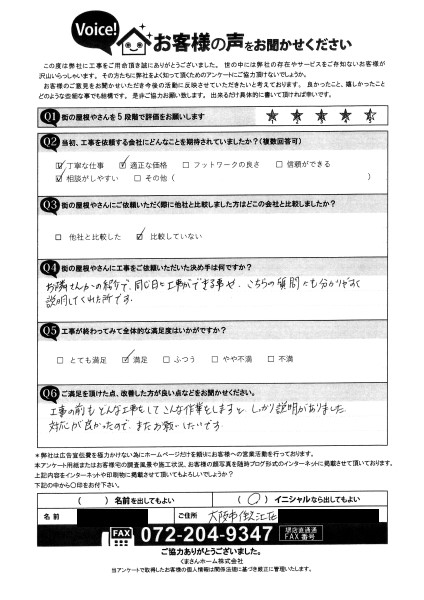 Voice!
お客様の声をお聞かせください
この度は弊社に工事をご用命頂き誠にありがとうございました。世の中には弊社の存在やサービスをご存知ないお客様が
沢山いらっしゃいます。その方たちに弊社をよく知って頂くためのアンケートにご協力頂けないでしょうか。
お客様のご意見をお聞かせいただき今後の活動に反映させていただきたいと考えております。良かったこと、嬉しかったこと
どのような些細な事でも結構です。是非ご協力お願い致します。出来るだけ具体的に書いて頂ければ幸いです。
Q1 街の屋根やさんを5段階で評価をお願いします ★ ★ ★ ★ ★
Q2 当初、工事を依頼する会社にどんなことを期待されていましたか？(複数回答可)
☑丁寧な仕事 ☑適正な価格 □フットワークの良さ □信頼ができる
☑相談がしやすい □その他（ ）
Q3 街の屋根やさんにご依頼いただく際に他社と比較しました方はどこの会社と比較しましたか？
□ 他社と比較した ☑ 比較していない
Q4 街の屋根やさんに工事をご依頼いただいた決め手は何ですか？
お隣さんからの紹介で、同じ日に工事ができる事や、こちらの質問にも分かりやすく
説明してくれた所です。
Q5 工事が終わってみて全体的な満足度はいかがですか？
□とても満足 ☑満足 □ふつう □やや不満 □不満
Q6 ご満足を頂けた点、改善した方が良い点などをお聞かせください。
工事の前もどんな工事をしてこんな作業をしますと、しっかり説明がありました
対応が良かったので、またお願いしたいです。
＊弊社は広告宣伝費を極力かけない為にホームページだけを頼りにお客様への営業活動を行っております。
本アンケート用紙またはお客様宅の調査風景や施工状況、お客様の顔写真を随時ブログ形式のインターネットに掲載させて頂いております。
上記内容をインターネットや印刷物に掲載させて頂いてもよろしいでしょうか？
下記の中から〇印をお付下さい。
（ ）名前を出してもよい （〇）イニシャルなら出してもよい
名前 ご住所 大阪市住之江区
FAX 072-204-9347 堺店直通
FAX番号
ご協力ありがとうございました。
くまさんホーム株式会社
当アンケートで取得したお客様の個人情報は関係法規に基づき厳正に管理いたします。